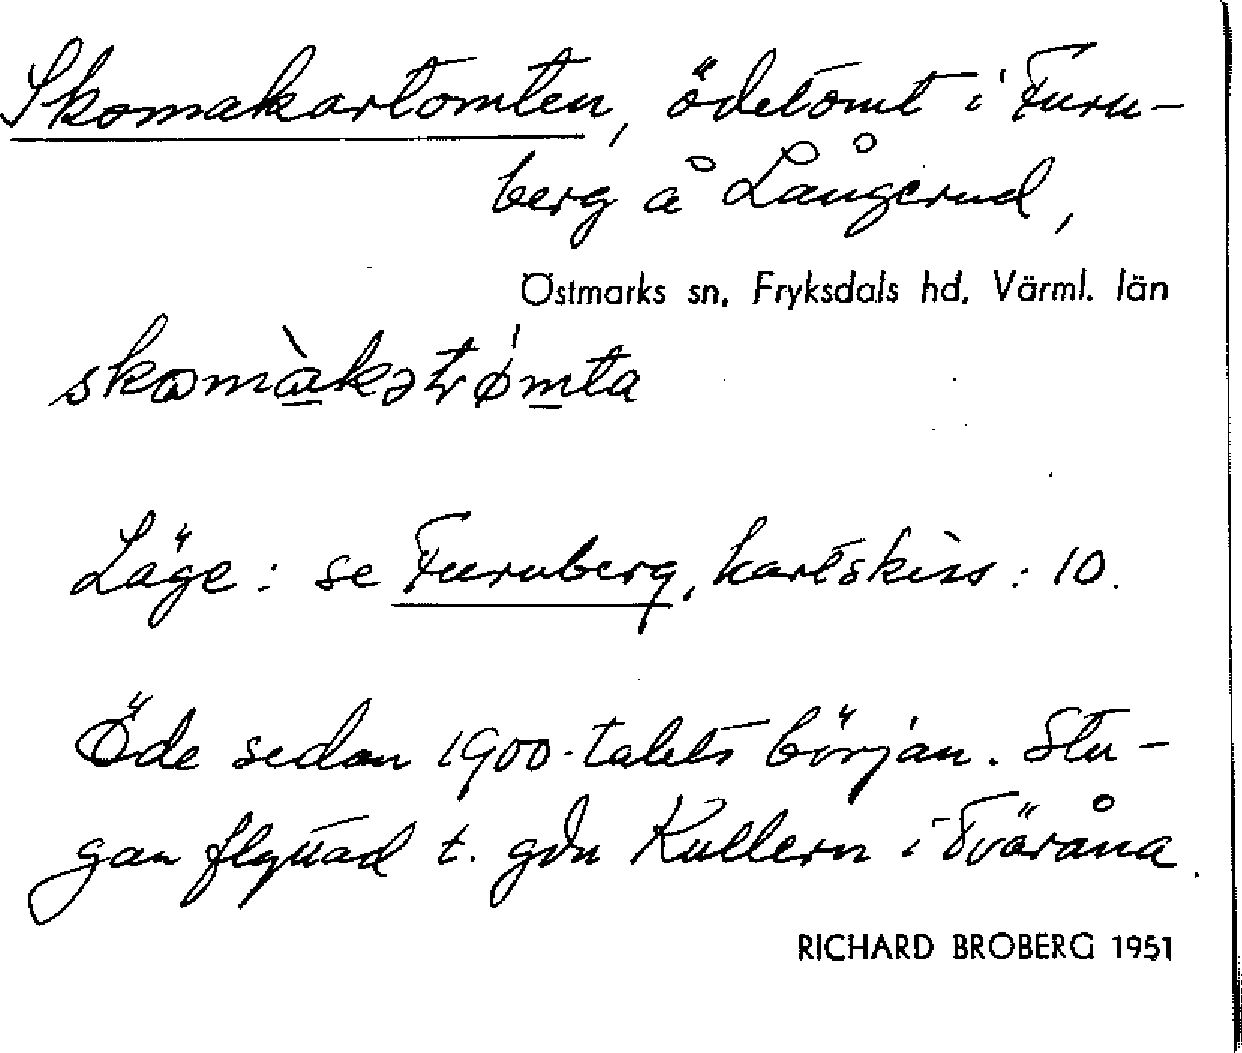 Skomakartomten, ödetomt i Furu-
berg å Långerud,
Östmarks sn. Fryksdals hd. Värml. län
skomàkətrǿmta
Läge: se Furuberg, kartskiss: 10.
Öde sedan 1900-talets början. Stu-
gan flyttad t. gdn Kullern i Tväråna.
RICHARD BROBERG 1951